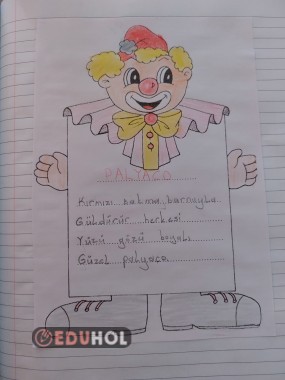 PALYAÇO
Kırmızı takma burnuyla
Güldürür herkesi
Yüzü gözü boyalı
Güzel palyaço
EDUHOL